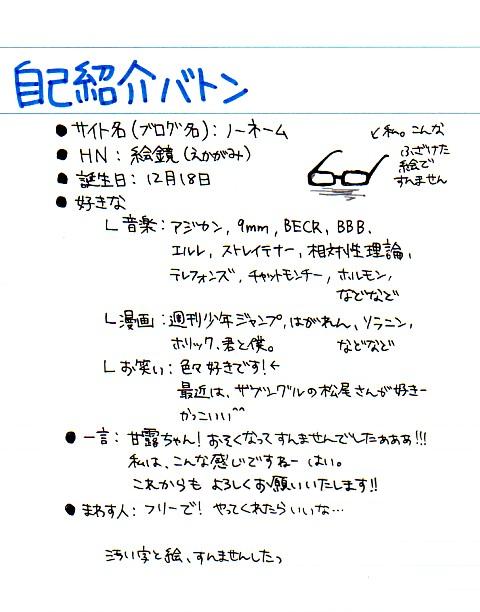 自己紹介バトン
● サイト名(ブログ名): ノーネーム
● HN: 絵鏡(えかがみ)
● 誕生日: 12月18日
● 好きな
┗音楽: アジカン, 9mm, BECK, BBB,
エルレ, ストレイテナー, 相対性理論,
テレフォンズ, チャットモンチー, ホルモン,
などなど
┗漫画: 週刊少年ジャンプ, はがれん, ソラニン,
ホリック, 君と僕。 などなど
┗お笑い: 色々好きです!←
最近は、ザブングルの松尾さんが好きー
かっこいい^^
● 一言: 甘露ちゃん! おそくなってすんませんでしたぁぁぁ!!!
私は、こんな感じですねー はい。
これからも よろしくお願いいたします!!
● まわす人: フリーで! やってくれたらいいな…
汚い字と絵、すんませんしたっ
私。こんな
ふざけた
絵で
すんません